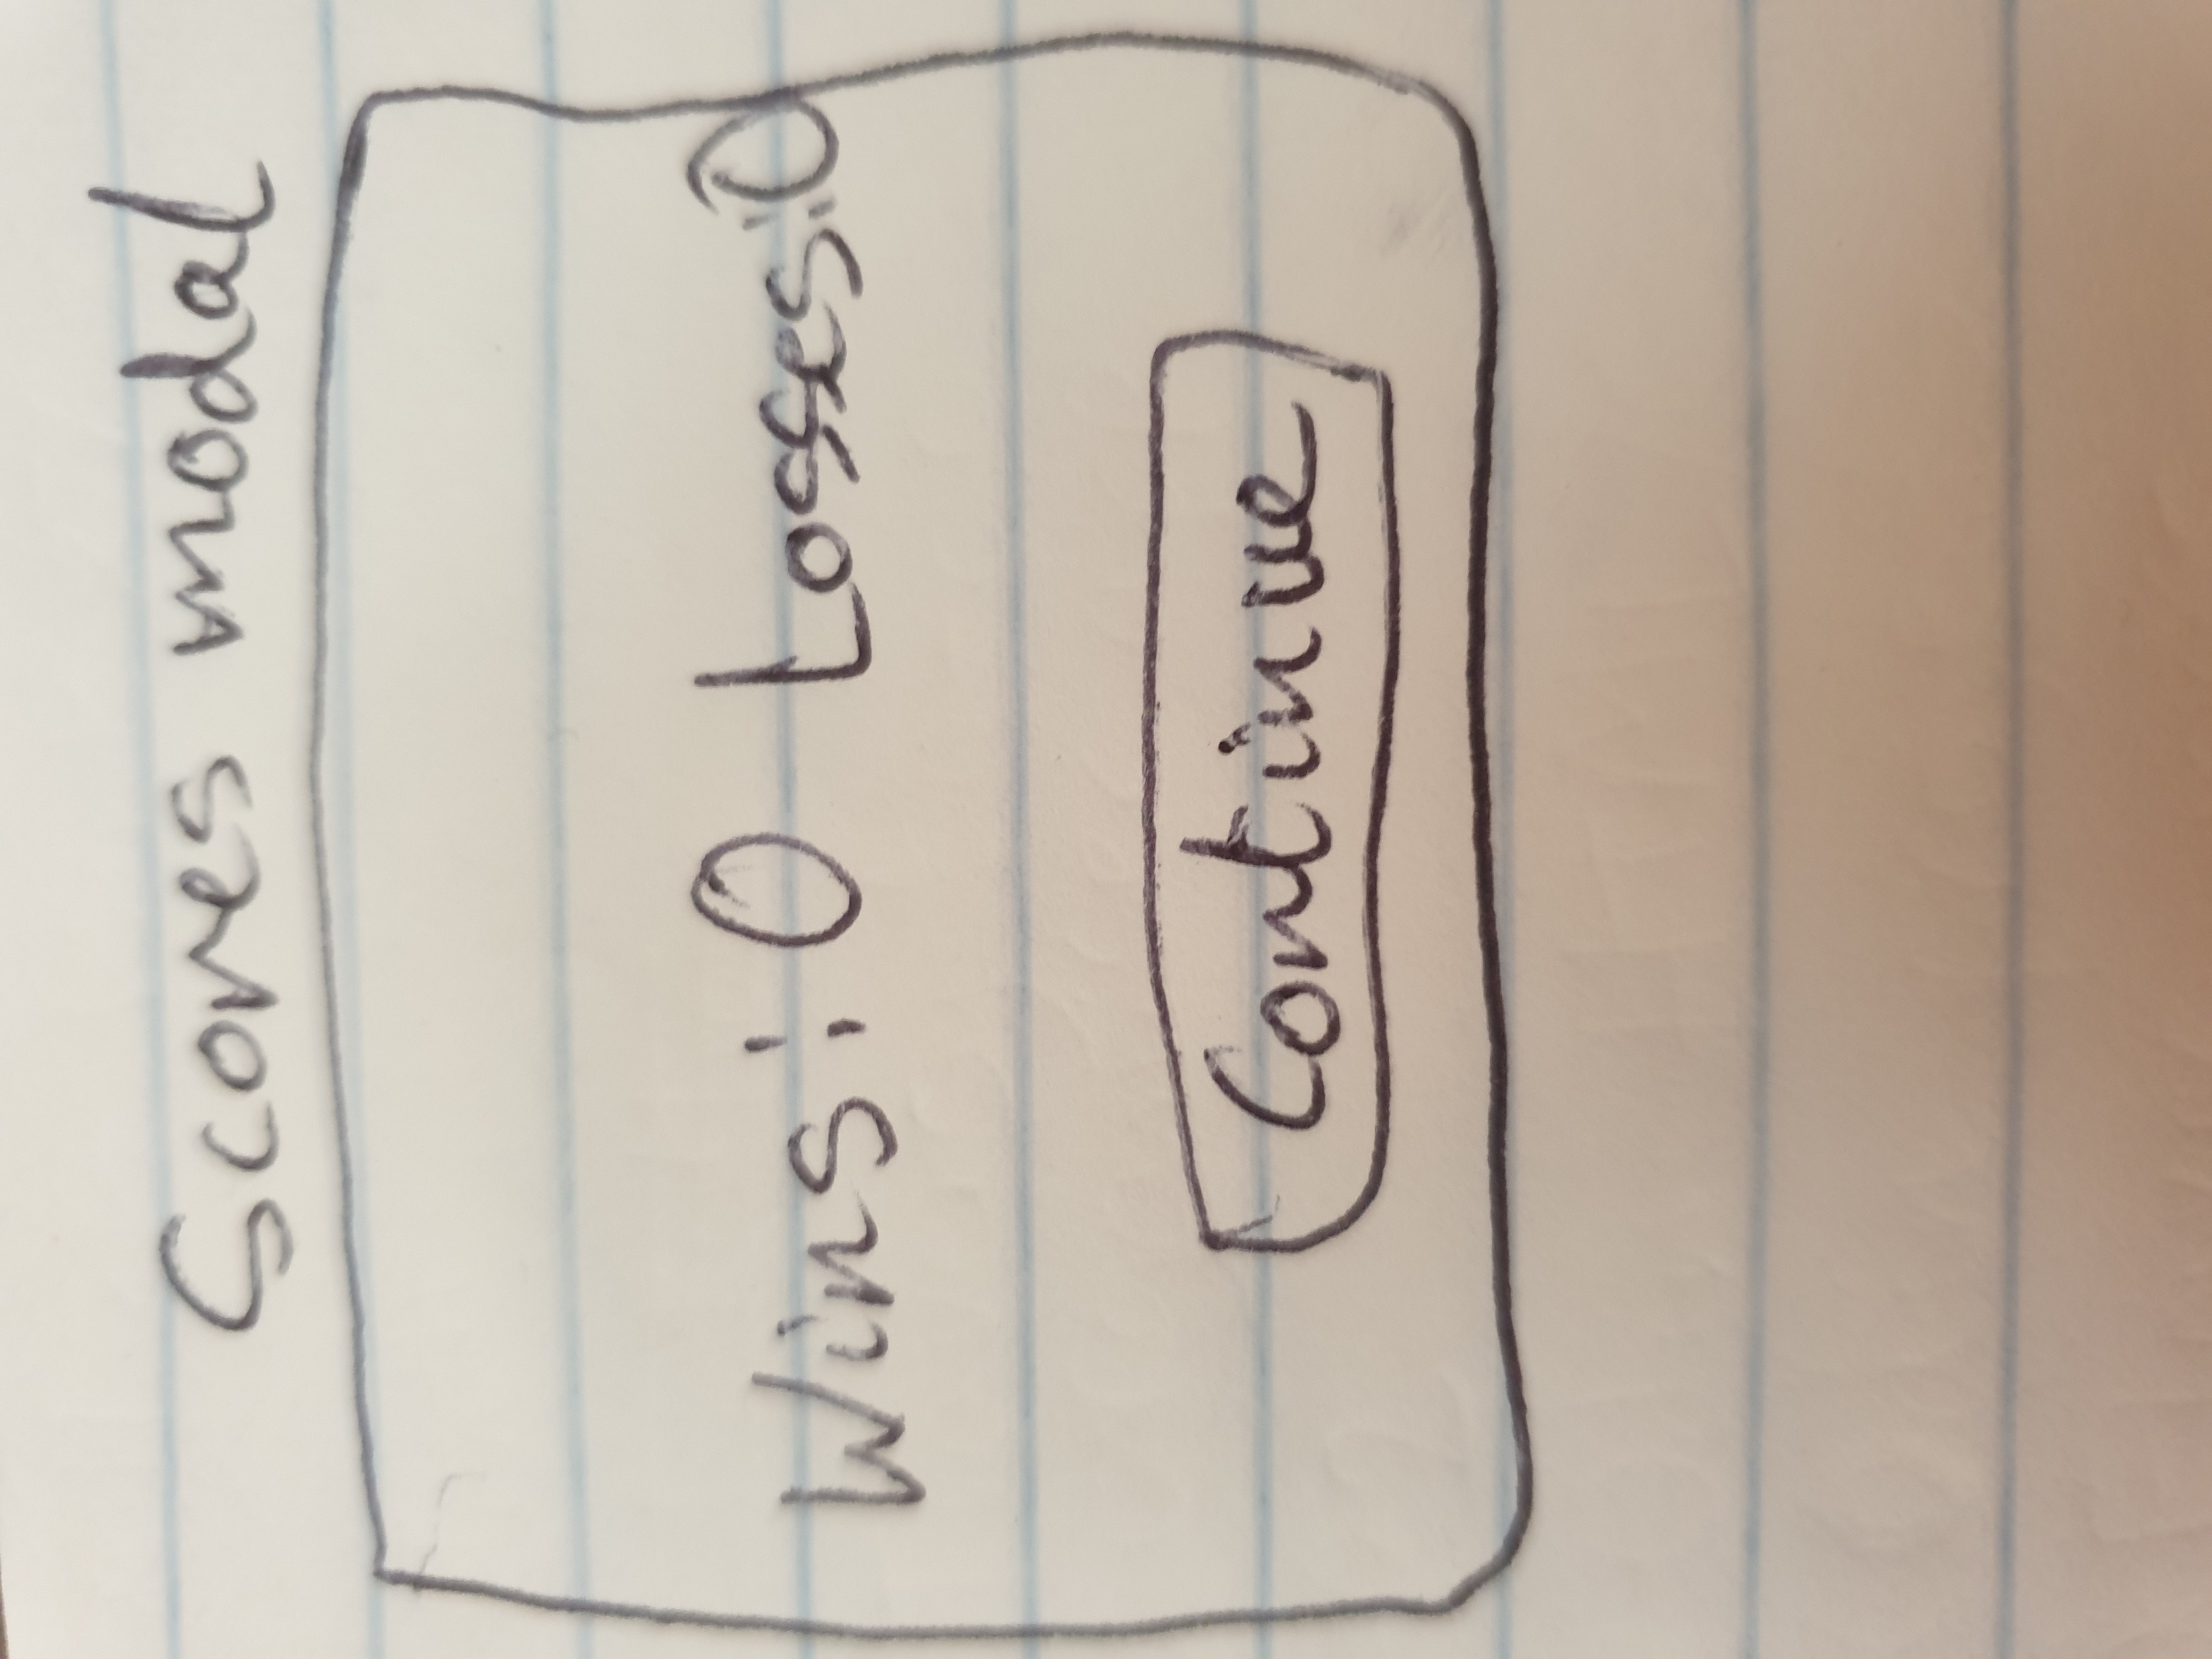 Scores modal
Wins: 0 Losses: 0
Continue